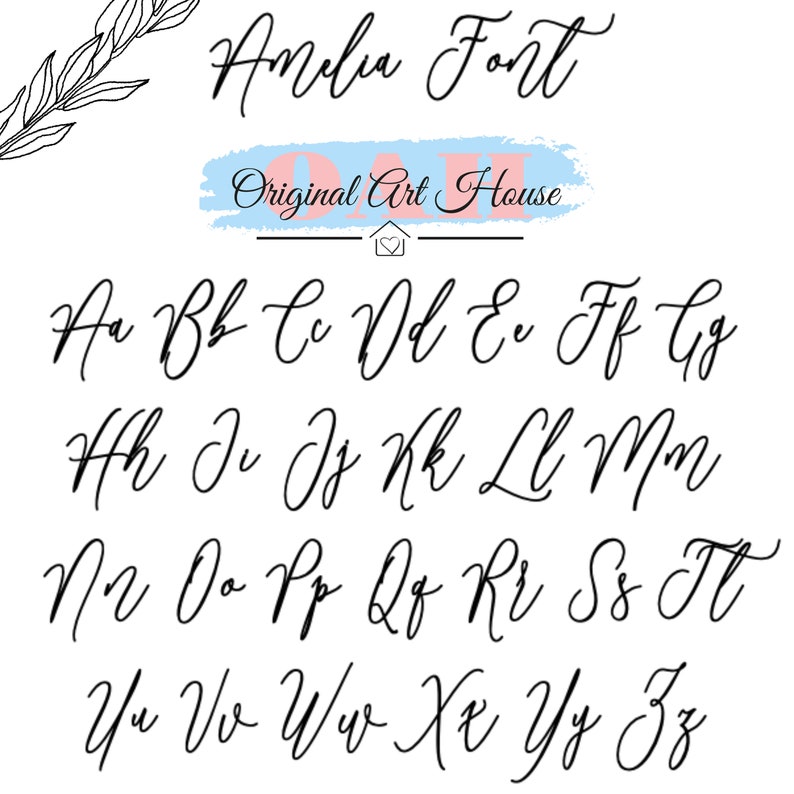 Amelia Font
OAH
Original Art House
Aa Bb Cc Dd Ee Ff Gg
Hh Ii Jj Kk Ll Mm
Nn Oo Pp Qq Rr Ss Tt
Uu Vv Ww Xx Yy Zz